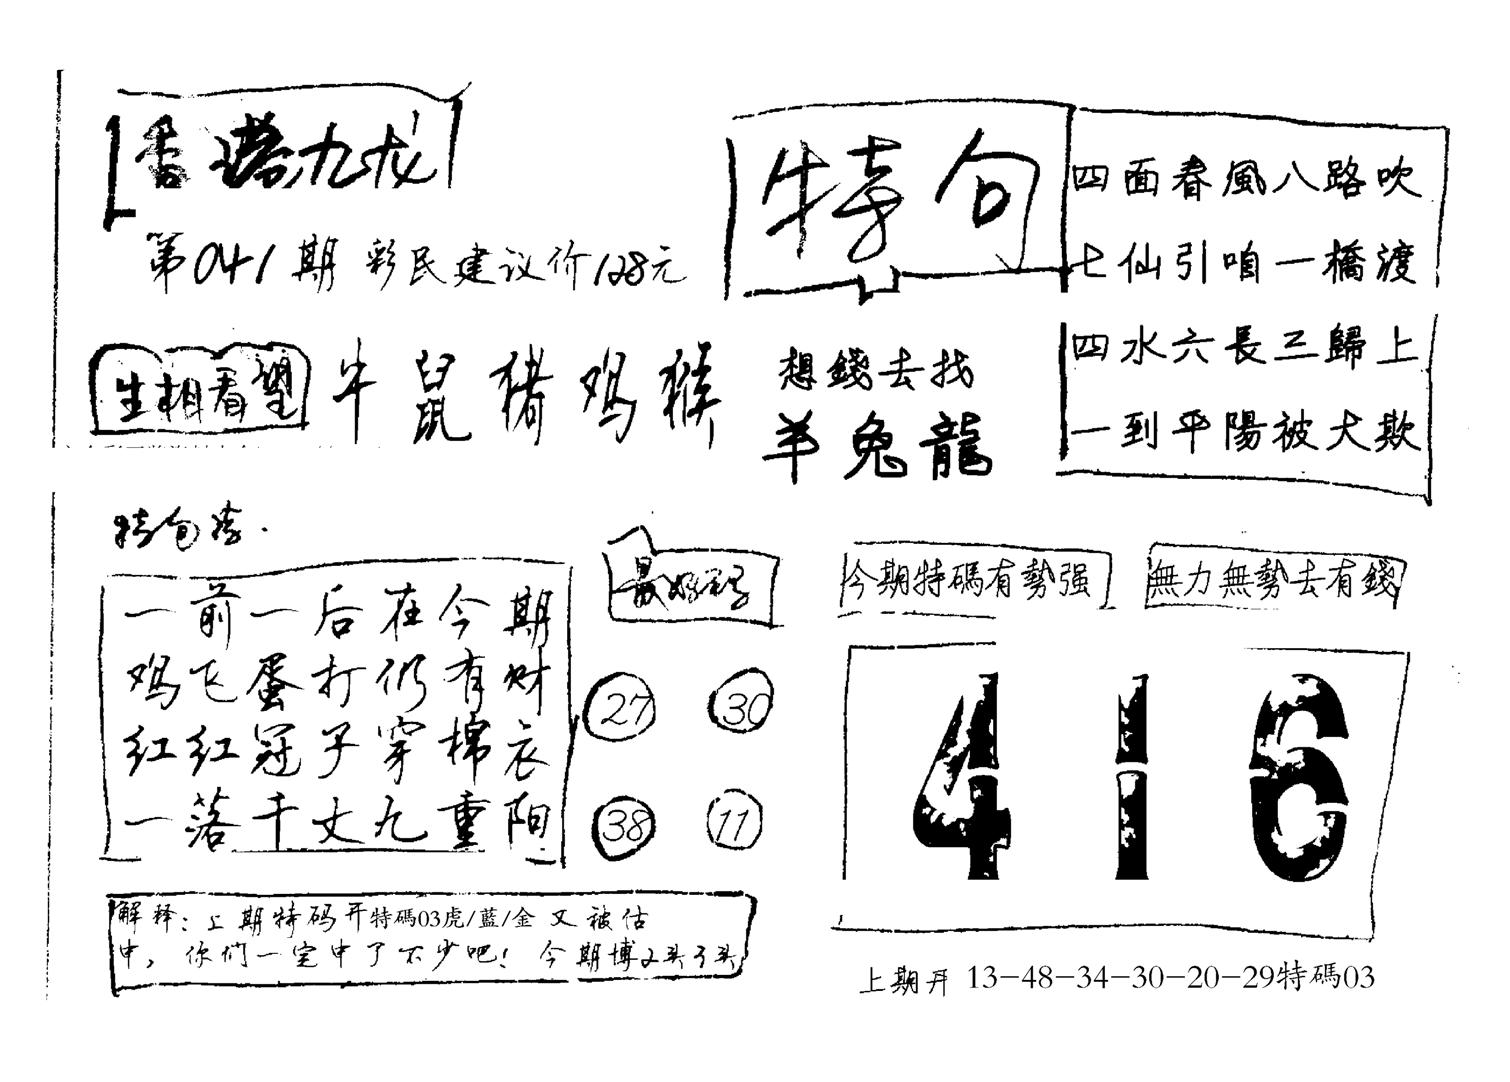 香港九龙
第041期 彩民建议价128元
特句
四面春風八路吹
七仙引咱一橋渡
四水六長三歸上
一到平陽被犬欺
生相看望
牛鼠猪鸡猴
想錢去找
羊兔龍
特句诗.
一前一后在今期
鸡飞蛋打仍有财
红红冠子穿棉衣
一落千丈九重阳
最好码
27 30
38 11
今期特碼有勢强
無力無勢去有錢
416
解释:上期特码开特碼03虎/藍/金 又被估
中,你们一定中了不少吧!今期博2头3头
上期开 13-48-34-30-20-29特碼03